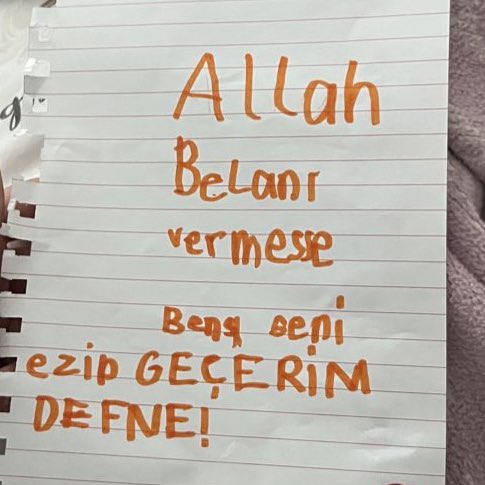 Allah
Belanı
vermesse
Benş seni
ezip GEÇERİM
DEFNE!